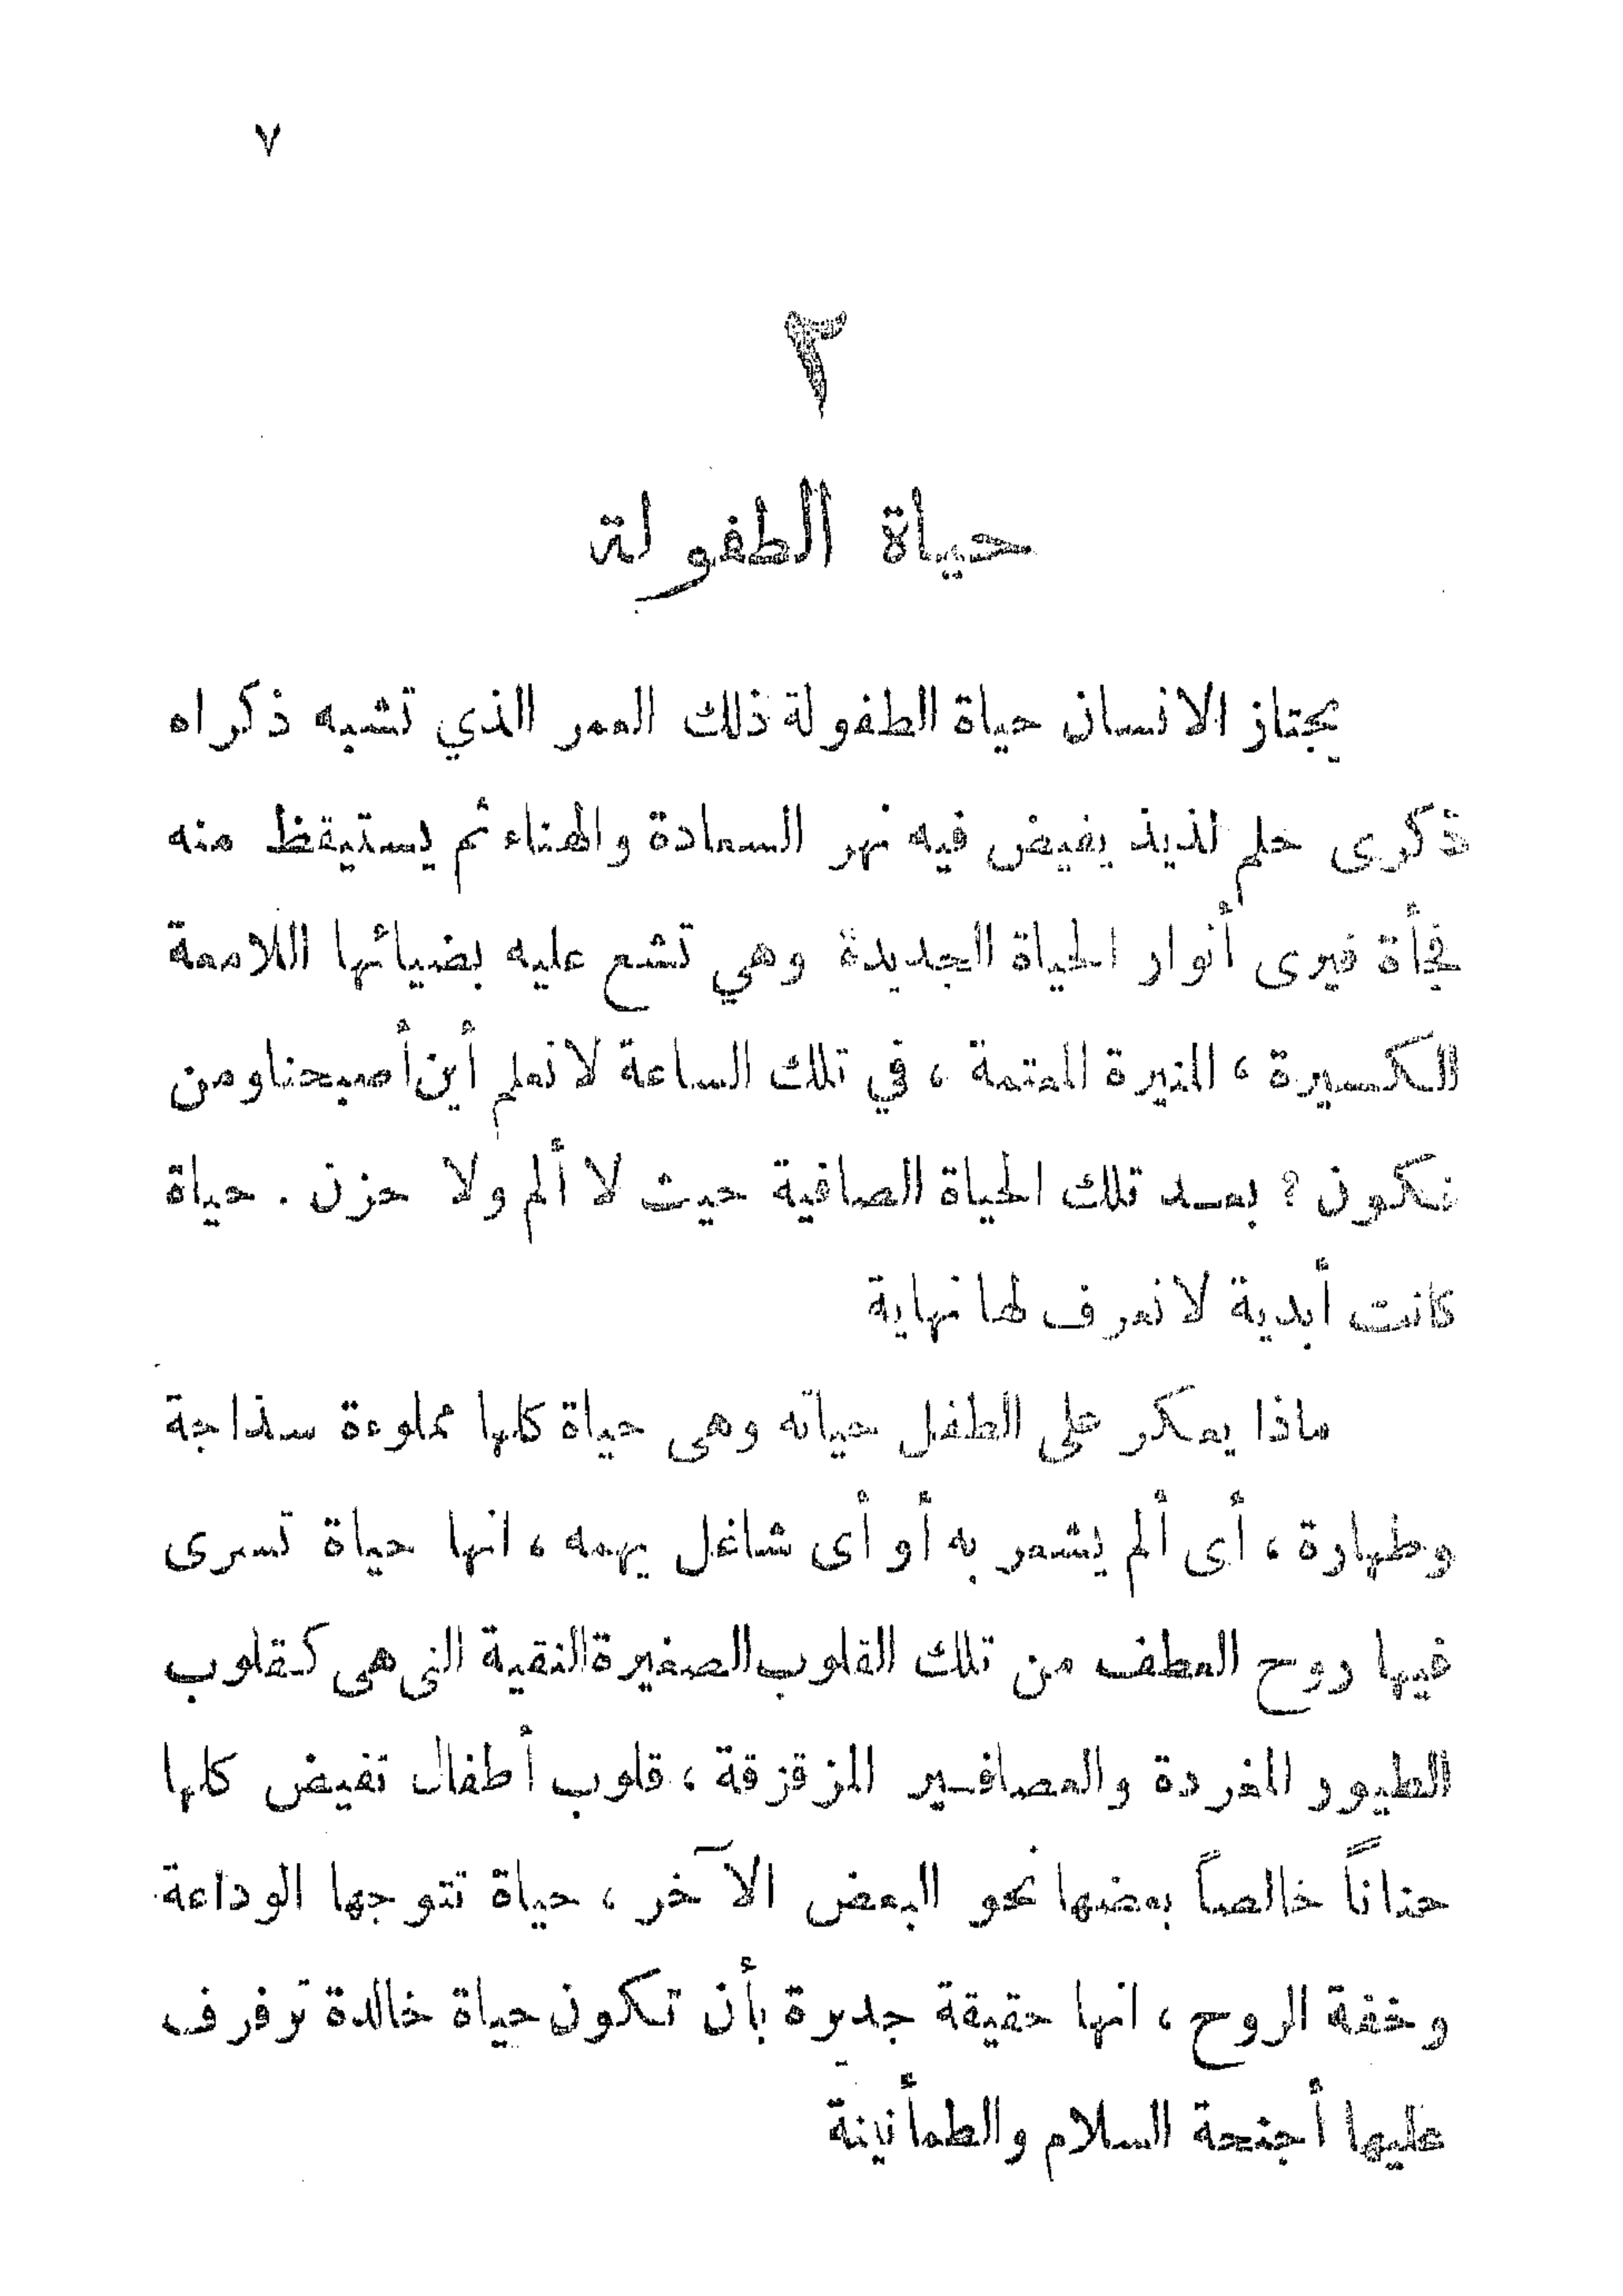 ٧
٢
حياة الطفولة
يجتاز الانسان حياة الطفولة ذلك العمر الذي تشبه ذكراه
ذكرى حلم لذيذ يفيض فيه نهر السعادة والهناء ثم يستيقظ منه
فجأة فيرى أنوار الحياة الجديدة وهي تشع عليه بضيائها اللامعة
الكسيرة ، المنيرة المعتمة ، في تلك الساعة لا نعلم أين أصبحنا ومن
نكون ? بعد تلك الحياة الصافية حيث لا ألم ولا حزن . حياة
كانت أبدية لا نعرف لها نهاية
ماذا يعكر على الطفل حياته وهى حياة كلها مملوءة سذاجة
وطهارة ، أى ألم يشعر به أو أى شاغل يهمه ، انها حياة تسرى
فيها روح العطف من تلك القلوب الصغيرة النقية التى هى كقلوب
الطيور المغردة والعصافير المزقزقة ، قلوب أطفال تفيض كلها
حناناً خالصاً بعضها نحو البعض الآخر ، حياة تتوجها الوداعة
وخفة الروح ، انها حقيقة جديرة بأن تكون حياة خالدة ترفرف
عليها أجنحة السلام والطمأنينة